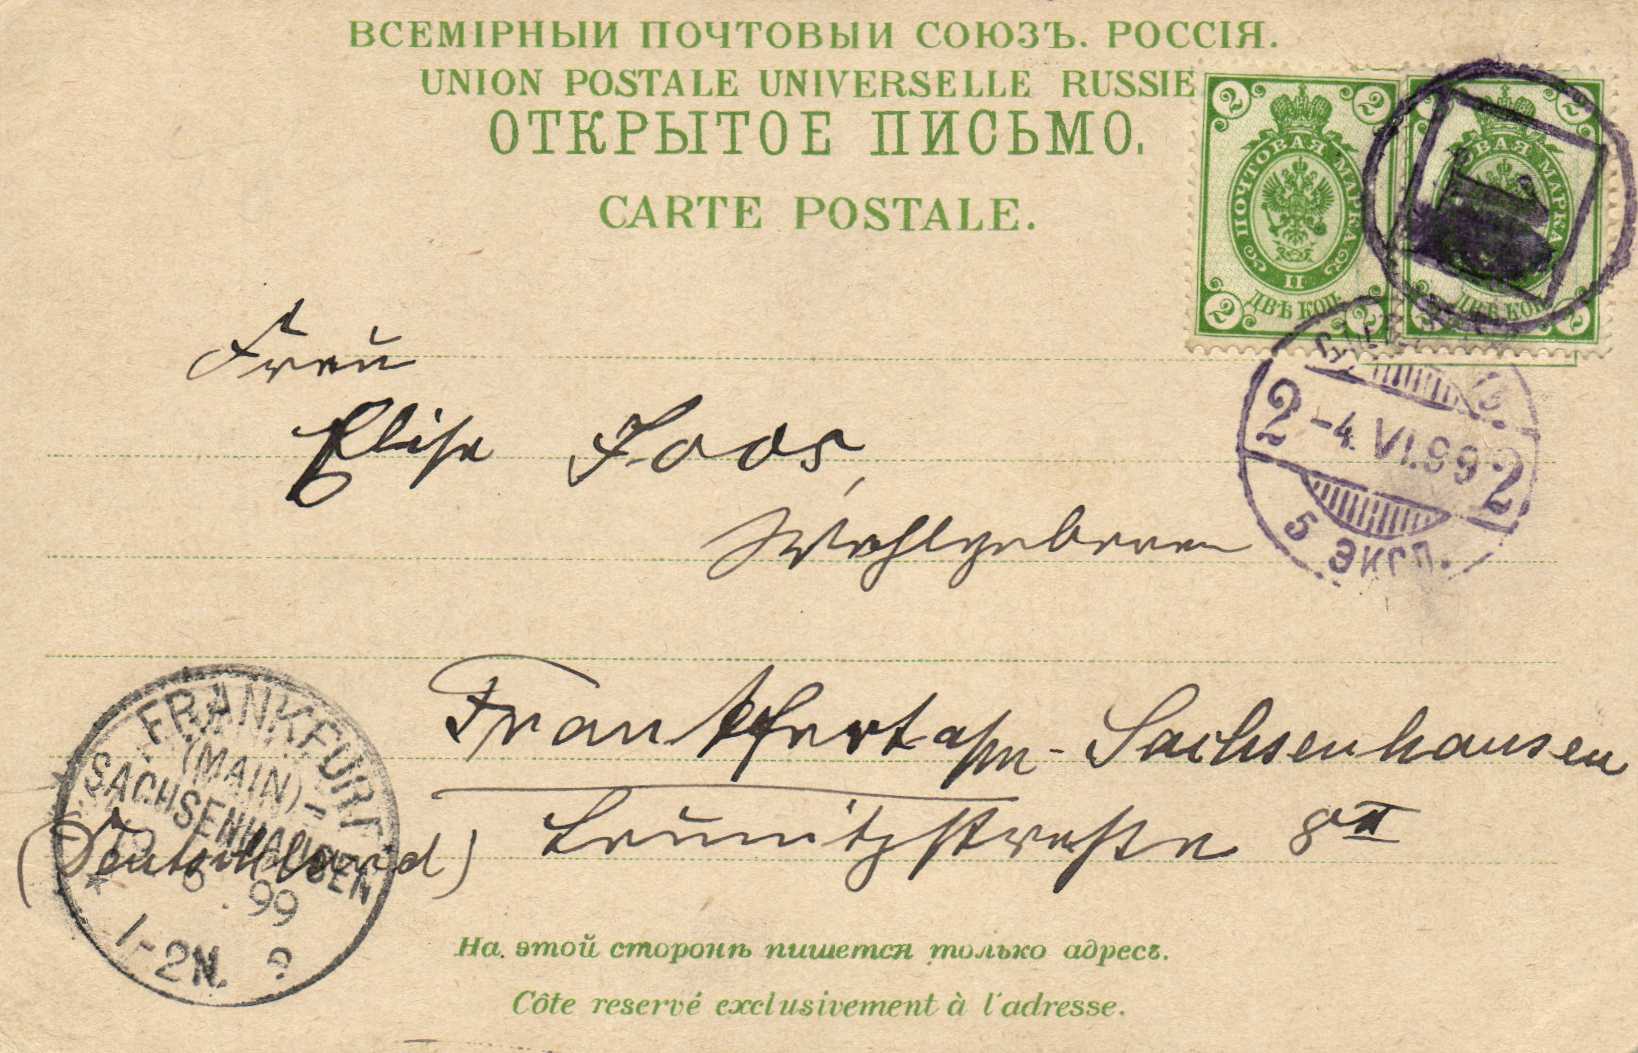 ВСЕМІРНЫЙ ПОЧТОВЫЙ СОЮЗЪ. РОССІЯ.
UNION POSTALE UNIVERSELLE RUSSIE
ОТКРЫТОЕ ПИСЬМО.
CARTE POSTALE.
2 2
ПОЧТОВАЯ МАРКА
II
ДВѢ КОП.
2 2
2
ОВАЯ МАРКА
ДВѢ КОП
2
2 -4.VI.99 2
5 ЭКСП.
Frau
Elise Loos,
Wohlgeboren
Frankfurt a/m - Sachsenhausen
(Deutschland)
8 II
FRANKFURT
(MAIN)-
SACHSENHAUSEN
6 . 99
1-2N.
На этой сторонѣ пишется только адресъ.
Côte reservé exclusivement à l'adresse.